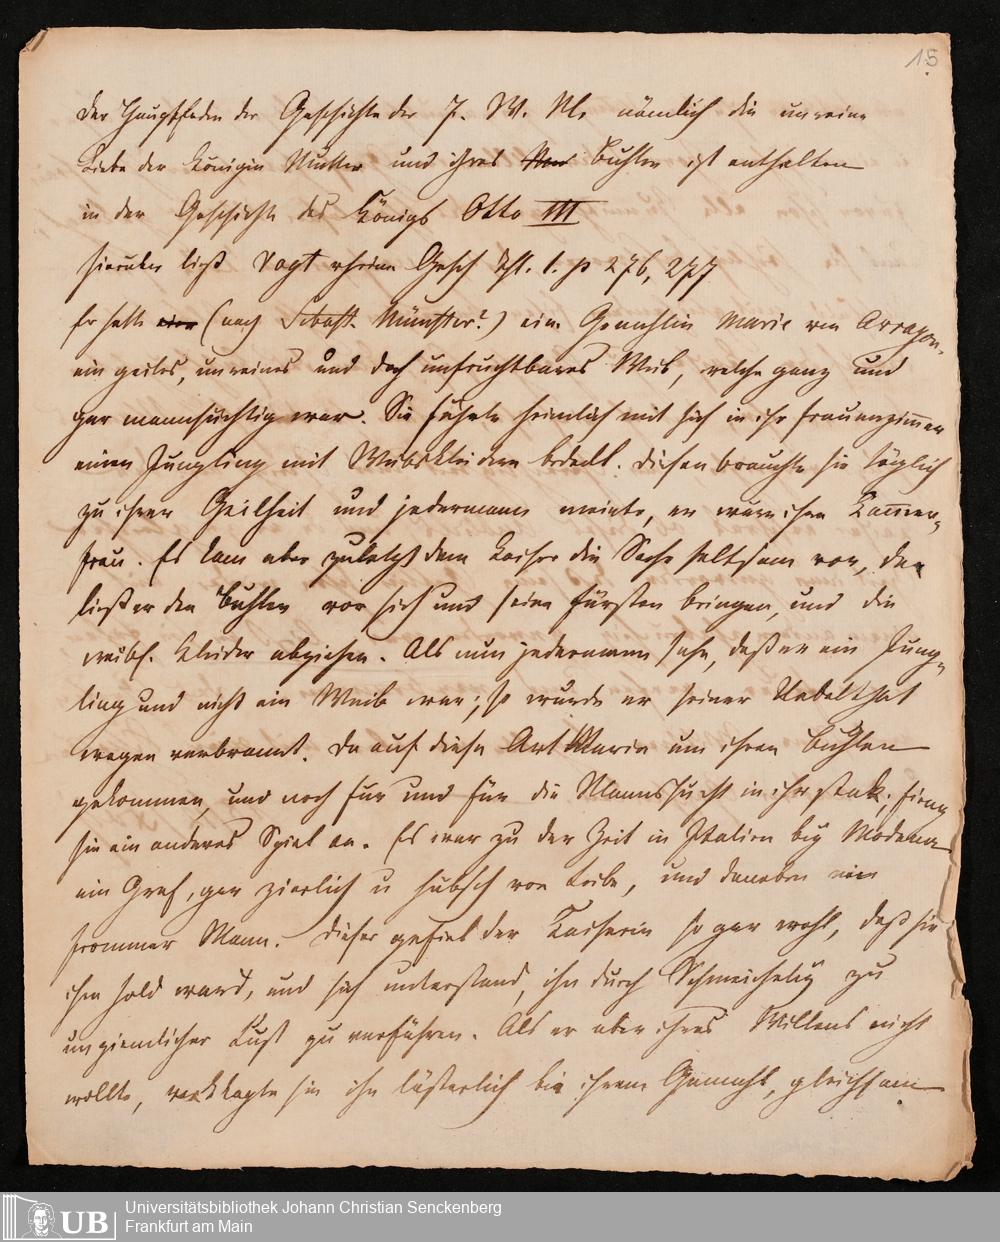 15
Der Hauptfaden der Geschichte der J. W. M. nämlich die unreine
Liebe der Königin Mutter und ihres Buhlen ist enthalten
in der Geschichte des Königs Otto III
hierüber ließ Vogt rheine Gesch Thl. 1. p 276, 277
Er hatte (nach Sebast. Münster?) eine Gemahlin Marie von Arragon,
ein geiles, unreines und doch unfruchtbares Weib, welche ganz und
gar mannsüchtig war. Sie führte heimlich mit sich in ihr Frauenzimmer
einen Jüngling mit Weibskleidern bedeckt. Diesen brauchte sie täglich
zu ihrer Geilheit und jedermann meinte, er wäre ihre Kammer-
frau. Es kam aber zuletzt dem Kaiser die Sache seltsam vor, da
ließ er den Buhlen vor sich und seine Fürsten bringen, und die
weibs. Kleider abziehen. Als nun jedermann sahe, daß er ein Jüng-
ling und nicht ein Weib war; so wurde er seiner Uebelthat
wegen verbrannt. Da auf diese Art Marie um ihren Buhlen
gekommen, und noch für und für die Mannssucht in ihr stak, fieng
sie ein anderes Spiel an. Es war zu der Zeit in Italien bey Modena
ein Graf, gar zierlich u hübsch von Leibe, und daneben ein
frommer Mann. Dieser gefiel der Kaiserin so gar wohl, daß sie
ihm hold ward, und sich unterstand, ihn durch Schmeicheley zu
unziemlicher Lust zu verführen. Als er aber ihres Willens nicht
wollte, verklagte sie ihn lästerlich bei ihrem Gemahl, gleichsam
UB
Universitätsbibliothek Johann Christian Senckenberg
Frankfurt am Main